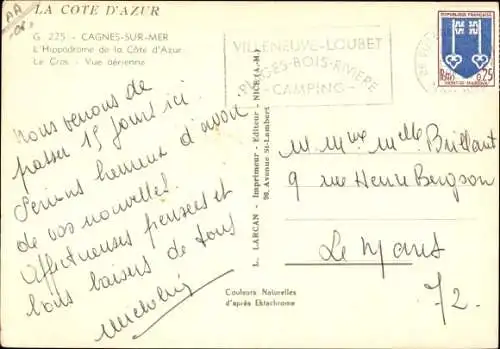 LA COTE D'AZUR
G. 225 - CAGNES-SUR-MER
L'Hippodrome de la Côte d'Azur
Le Cros - Vue aérienne
Nous venons de
passer 15 jours ici.
Serions heureux d'avoir
de vos nouvelles.
Affectueuses pensées et
bons baisers de tous
L. LARCAN - Imprimeur - Editeur - NICE (A.-M.)
98, Avenue St-Lambert
VILLENEUVE-LOUBET
PLAGES-BOIS-RIVIERE
- CAMPING -
REPUBLIQUE FRANÇAISE
POSTES
0,25
MONT-DE-MARSAN
M. Mme Melle Brillant
9 rue Henri Bergson
Le Mans
72.
Couleurs Naturelles
d'après Ektachrome